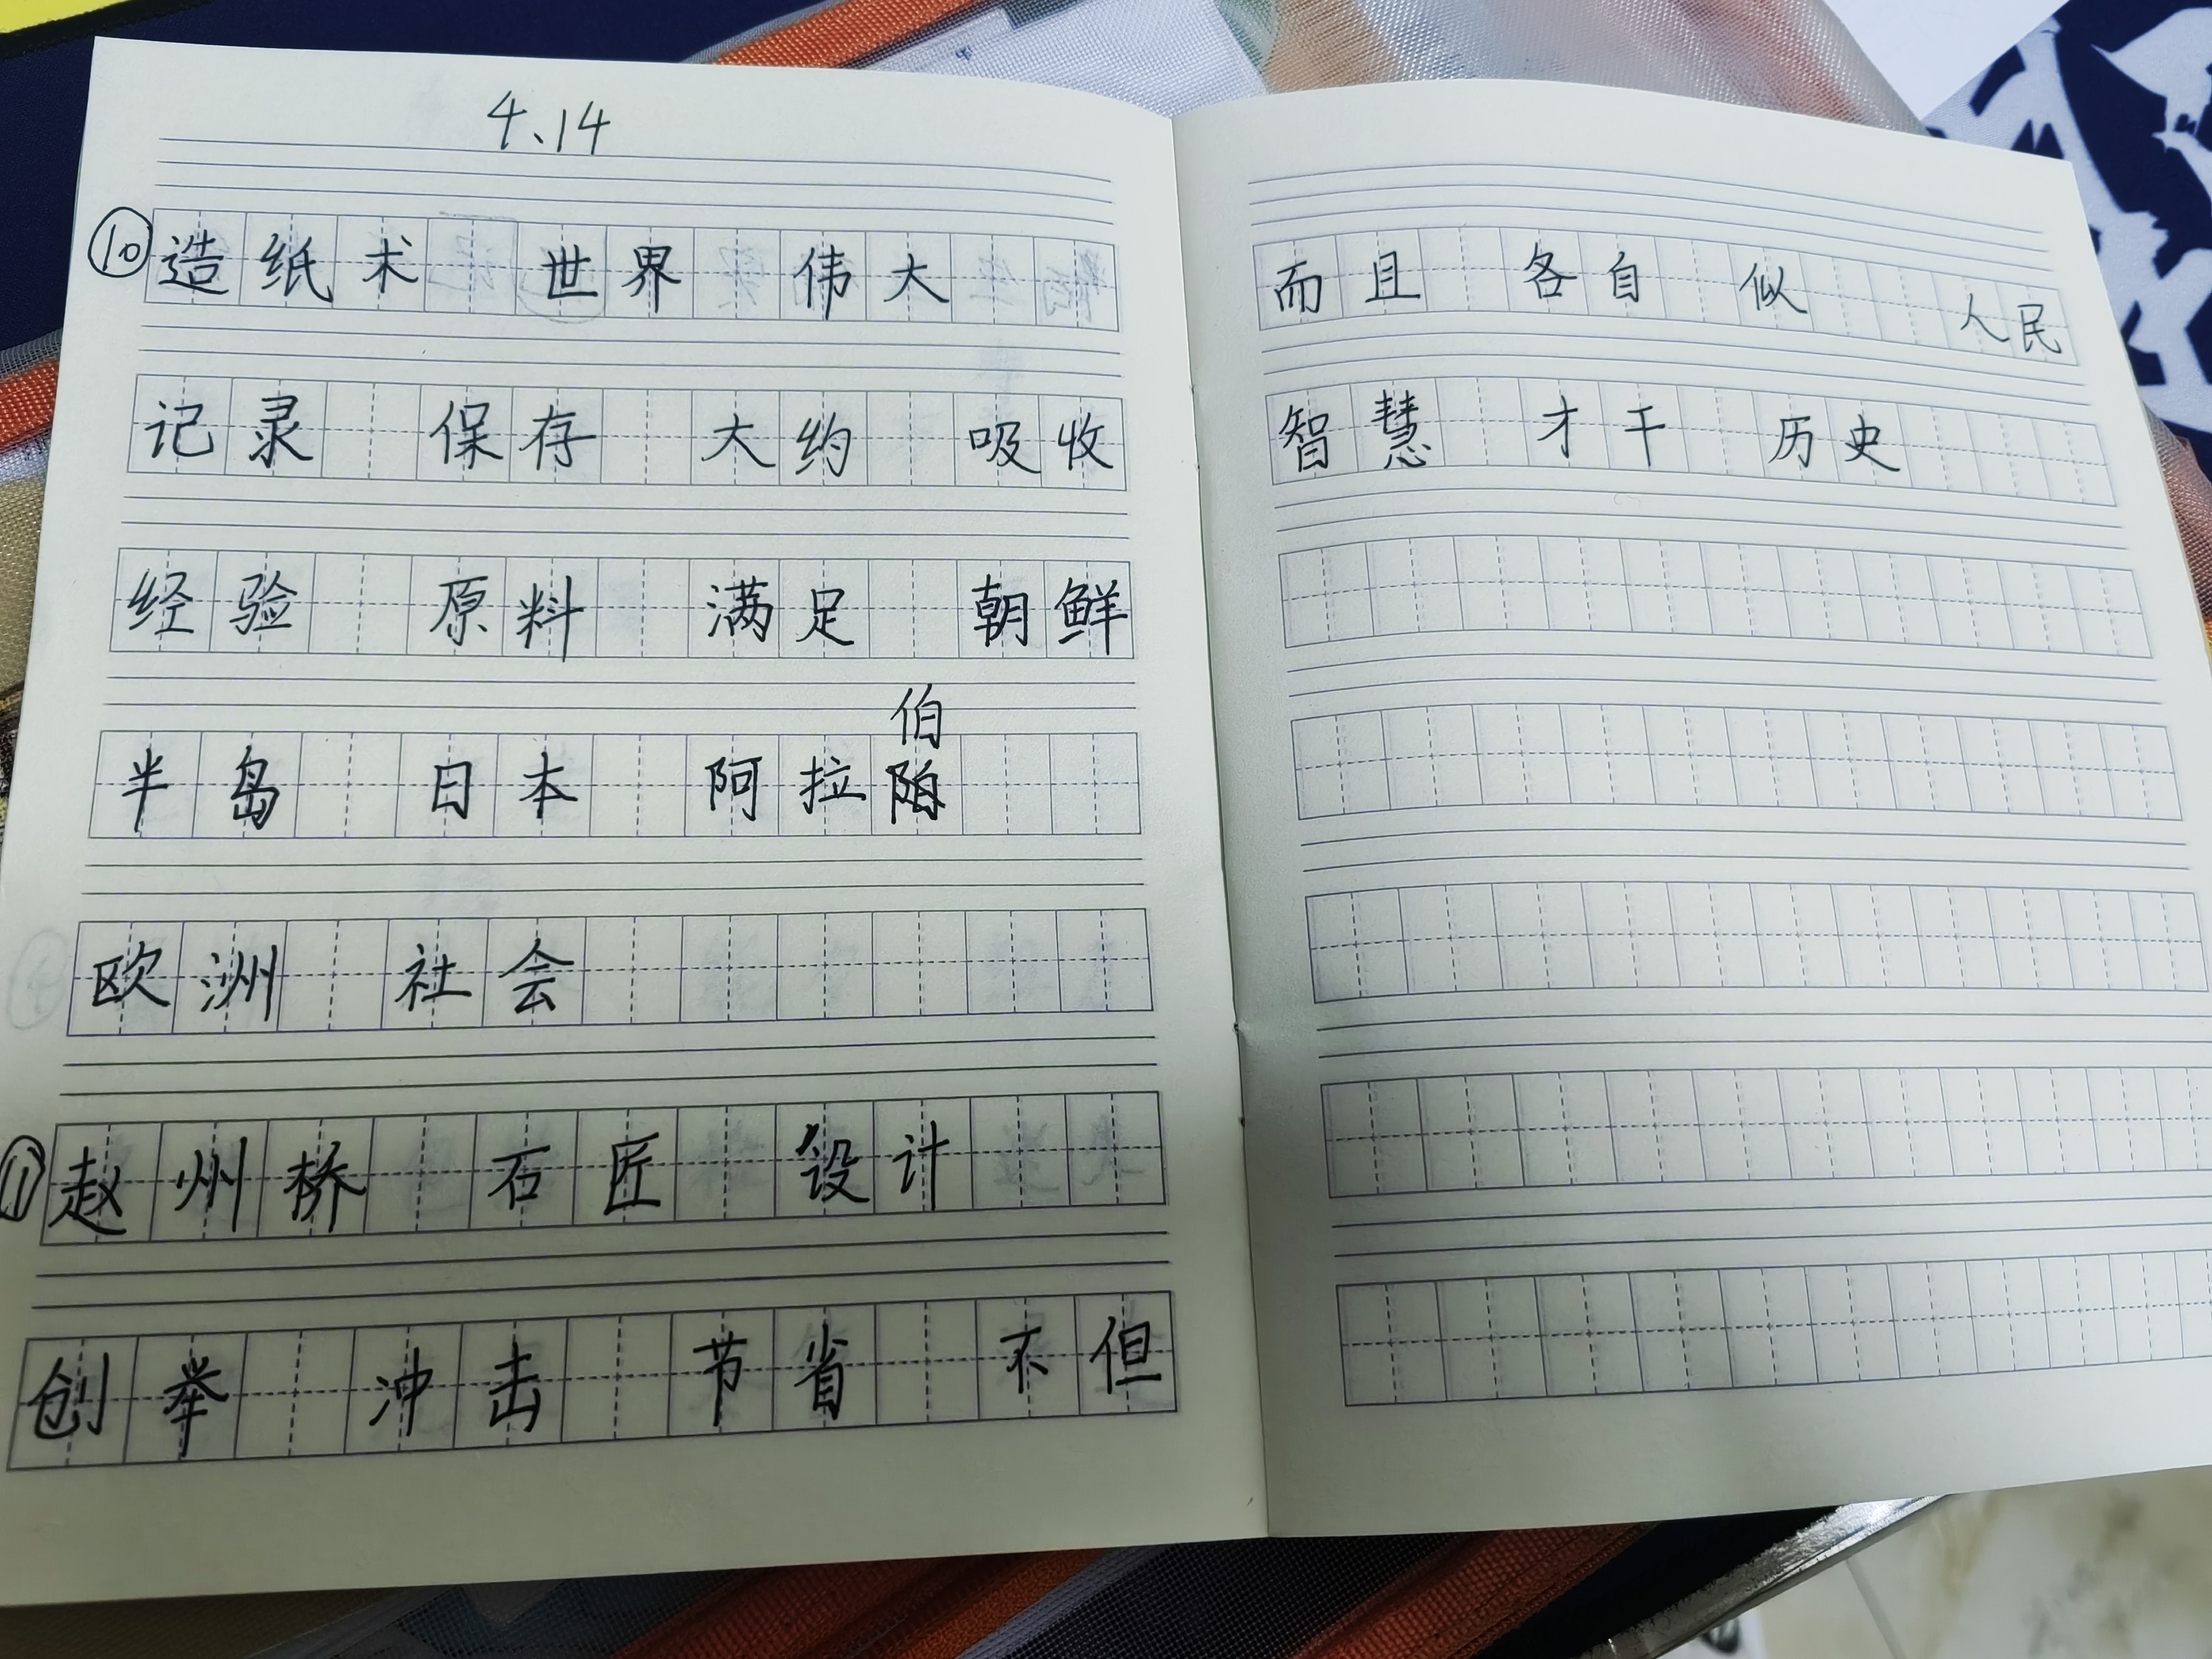 4、14
⑩造纸术 世界 伟大
记录 保存 大约 吸收
经验 原料 满足 朝鲜
伯
半岛 日本 阿拉
欧洲 社会
⑪赵州桥 石匠 设计
创举 冲击 节省 不但
而且 各自 似 人民
智慧 才干 历史